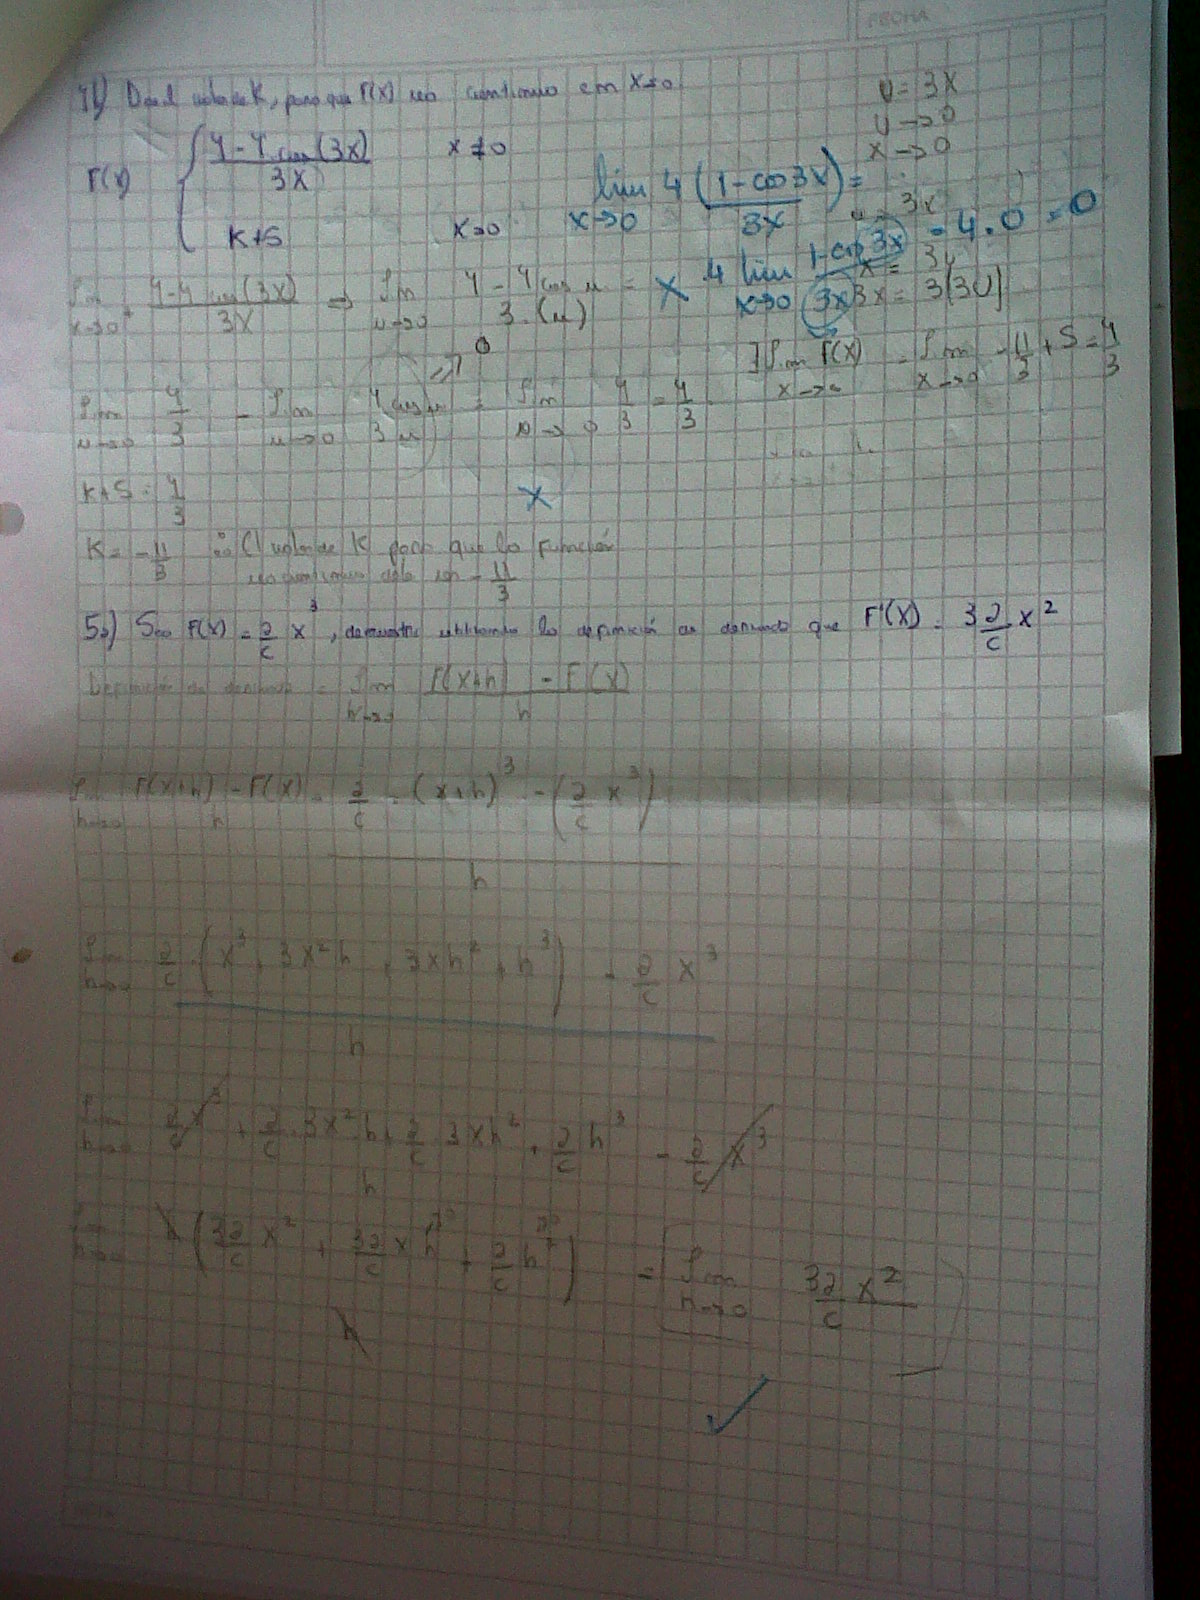 FECHA
4) Dé el valor de K, para que F(x) sea continuo en x=0
U = 3X
U → 0
X → 0
F(x) { 4 - 4 cos(3x) / 3x    x ≠ 0
K+5    x=0
lim x→0 4 (1 - cos 3x / 3x) =
4 lim x→0 1 - cos 3x / 3x = 4.0 = 0
Lim x→0 4 - 4 cos(3x) / 3x ⇒ Lim u→0 4 - 4 cos u / 3.(u) = X
3x = 3(3U)
∃ Lim x→0 F(x) = Lim x→0 -11/3 + 5 = 4/3
Lim u→0 4/3 - Lim u→0 4 cos u / 3 u = Lim u→0 4/3 = 4/3
K+5 = 4/3
X
K = -11/3 ∴ El valor de K para que la función
sea continua debe ser -11/3
5.) Sea F(x) = a/c x³, demuestre utilizando la definición de derivada que F'(X) = 3 a/c x²
Definición de derivada = Lim h→0 F(x+h) - F(x) / h
Lim h→0 F(x+h) - F(x) / h = a/c . (x+h)³ - (a/c x³) / h
Lim h→0 a/c . (x³ + 3x²h + 3xh² + h³) - a/c x³ / h
Lim h→0 a/c x³ + a/c 3x²h + a/c 3xh² + a/c h³ - a/c x³ / h
Lim h→0 h (3a/c x² + 3a/c x h + a/c h²) / h = Lim h→0 3a/c x²